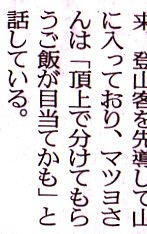 来、登山客を先導して山
に入っており、マツヨさ
んは「頂上で分けてもら
うご飯が目当てかも」と
話している。